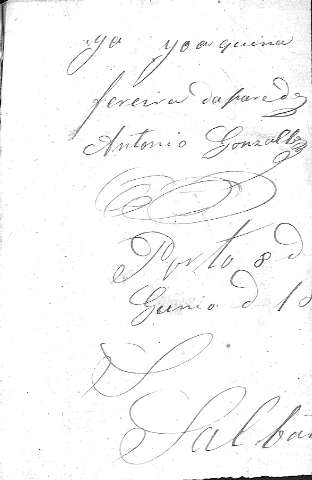 ya yoaquina
fereira da parede
Antonio Gonzalez
Porto 8 d
Gunio d 18
S
Salba